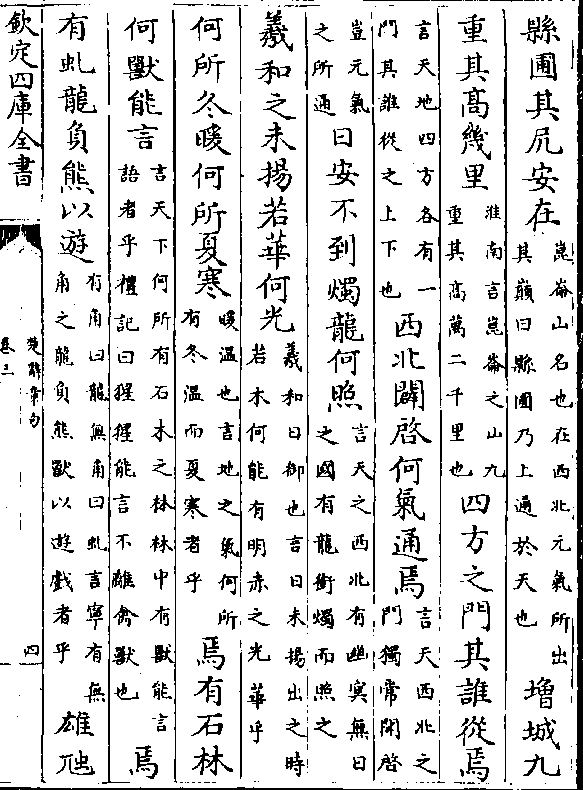 縣圃其凥安在崑崙山名也在西北元氣所出其巔曰縣圃乃上通於天也增城九
重其髙幾里淮南言崑崙之山九重其高萬二千里也四方之門其誰從焉
言天地四方各有一門其誰從之上下也西北闢啓何氣通焉言天西北之門獨常開啓
豈元氣之所通日安不到燭龍何照言天之西北有幽冥無日之國有龍銜燭而照之
羲和之未揚若華何光羲和日御也言日未揚出之時若木何能有明赤之光華乎
何所冬暖何所夏寒暖溫也言地之氣何所有冬溫而夏寒者乎焉有石林
何獸能言言天下何所有石木之林林中有獸能言語者乎禮記曰猩猩能言不離禽獸也焉
有虬龍負熊以遊有角曰龍無角曰虬言寧有無角之龍負熊獸以遊戲者乎雄虺
欽定四庫全書
楚辭章句
卷三
四